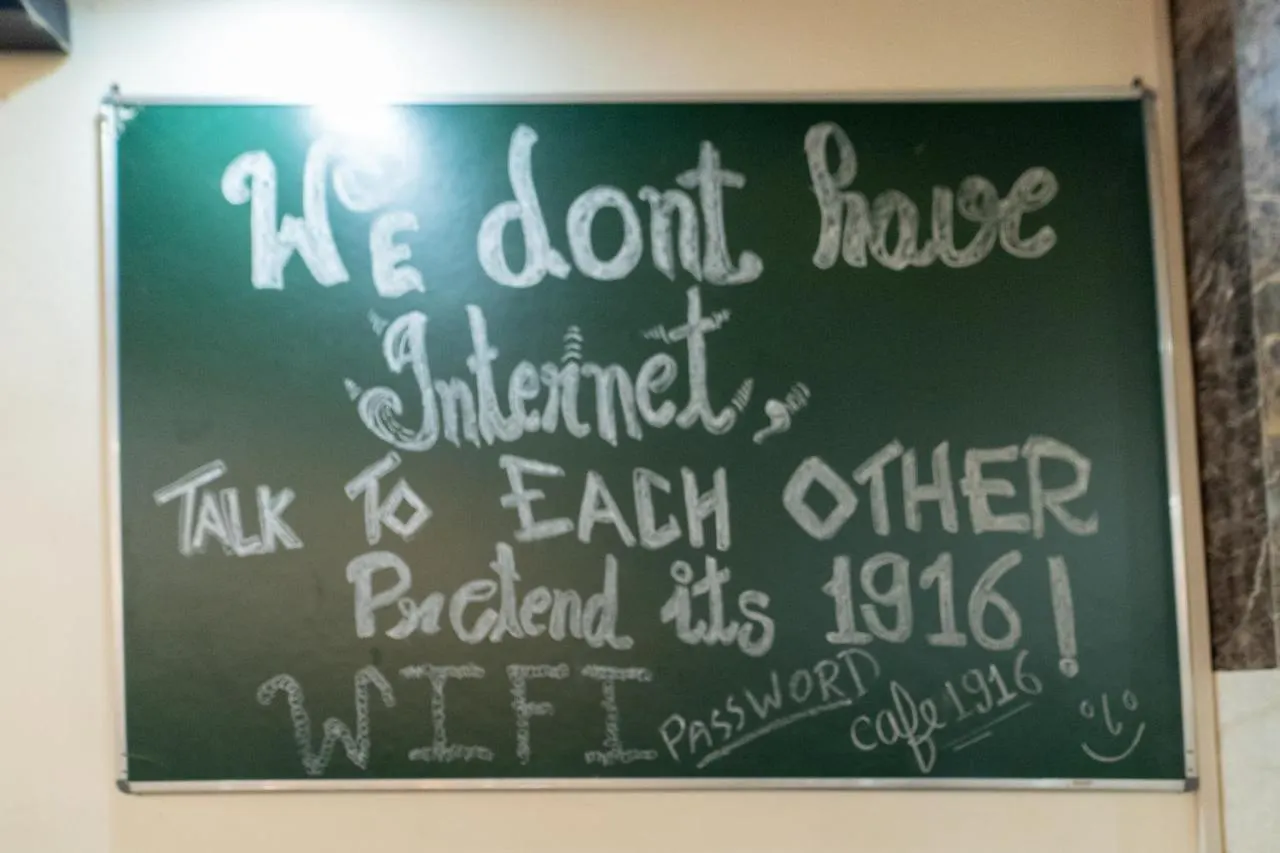 We dont have
Internet,
TALK TO EACH OTHER
Pretend its 1916!
WIFI PASSWORD cafe1916